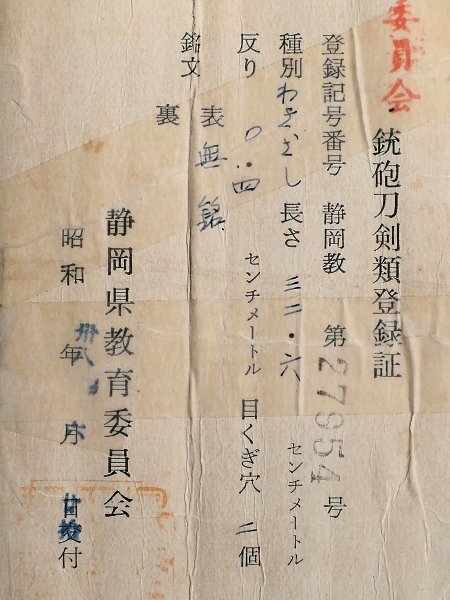 委員会
銃砲刀剣類登録証
登録記号番号 静岡教 第27954号
種別 わきざし 長さ 三二・六 センチメートル
反り 〇・四 センチメートル 目くぎ穴 二個
銘文 表 無銘
裏
静岡県教育委員会
昭和 卅八年 月 日交付